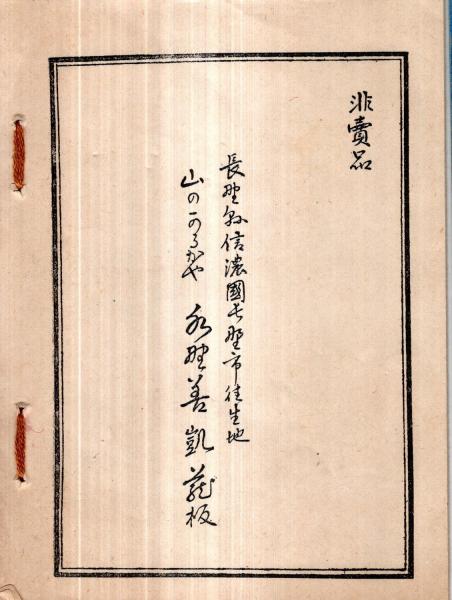 非賣品
長野縣信濃國長野市往生地
山のかるかや 水野善凱蔵板